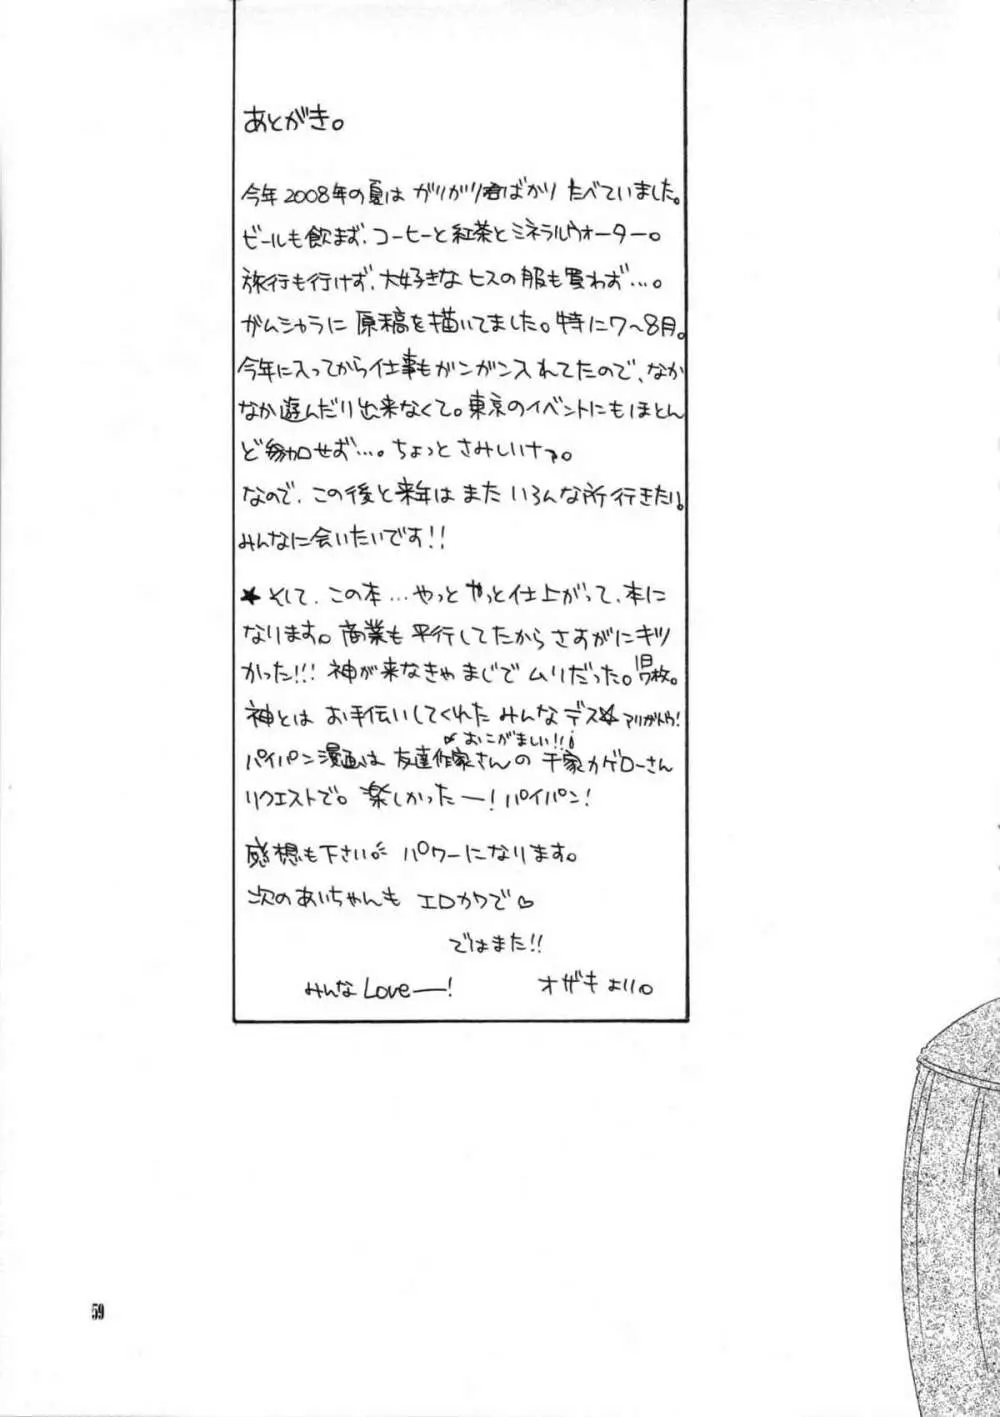 あとがき。
今年2008年の夏は ガリガリ君ばかり たべていました。
ビールも飲まず、コーヒーと紅茶とミネラルウォーター。
旅行も行けず、大好きな ヒスの服も買わず…。
がムシャラに 原稿を描いてました。特に7〜8月。
今年に入ってから仕事もガンガン入れてたので、なか
なか遊んだり出来なくて。東京のイベントにもほとん
ど参加せず…。ちょっと さみしいナァ。
なので、この後と来年は また いろんな所行きたい。
みんなに会いたいです!!
★そして、この本…やっと やっと仕上がって、本に
なります。商業も 平行してたから さすがにキツ
かった!!! 神が来なきゃ まじで ムリだった。1日7枚。
神とは お手伝いしてくれた みんなデス☆ アリガトウ!
おこがましい!!
パイパン漫画は 友達作家さんの 千家カゲローさん
リクエストで。楽しかったー! パイパン!
感想も下さい。 パワーになります。
次のあいちゃんも エロカワで♡
ではまた!!
みんなLoveー! オザキより。
59